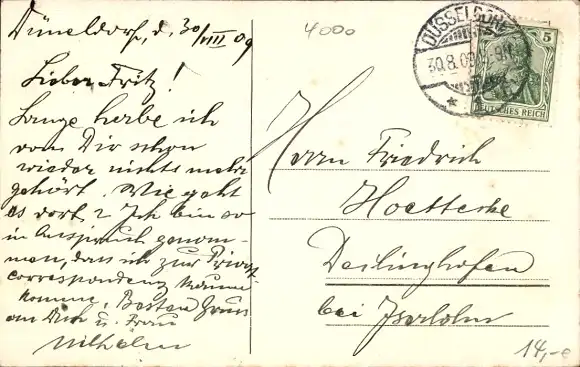 Düsseldorf, d. 30/VIII 09
4000
DÜSSELDORF
30.8.09
5
DEUTSCHES REICH
Lieber Fritz!
Lange habe ich
von Dir schon
wieder nichts mehr
gehört. Wie geht
es dort? Ich bin so
in Anspruch genom-
men, dass ich zur Privat-
correspondenz kaum
komme. Besten Gruss
an Dich u. Frau
Wilhelm
Herrn Friedrich
Hoettecke
Deilinghofen
bei Iserlohn
14,-e